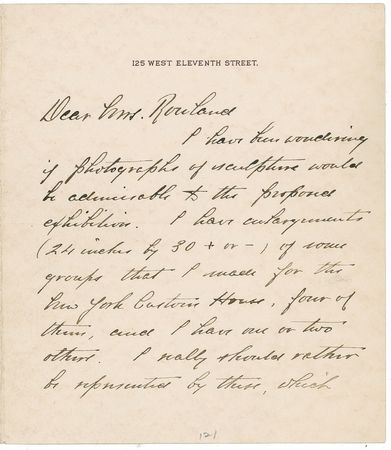 125 WEST ELEVENTH STREET.
Dear Mrs. Rowland
I have been wondering
if photographs of sculpture would
be admissable to the proposed
exhibition. I have enlargements
(24 inches by 30 + or -) of some
groups that I made for the
New York Custom House, four of
them, and I have one or two
others. I really should rather
be represented by these, which
121